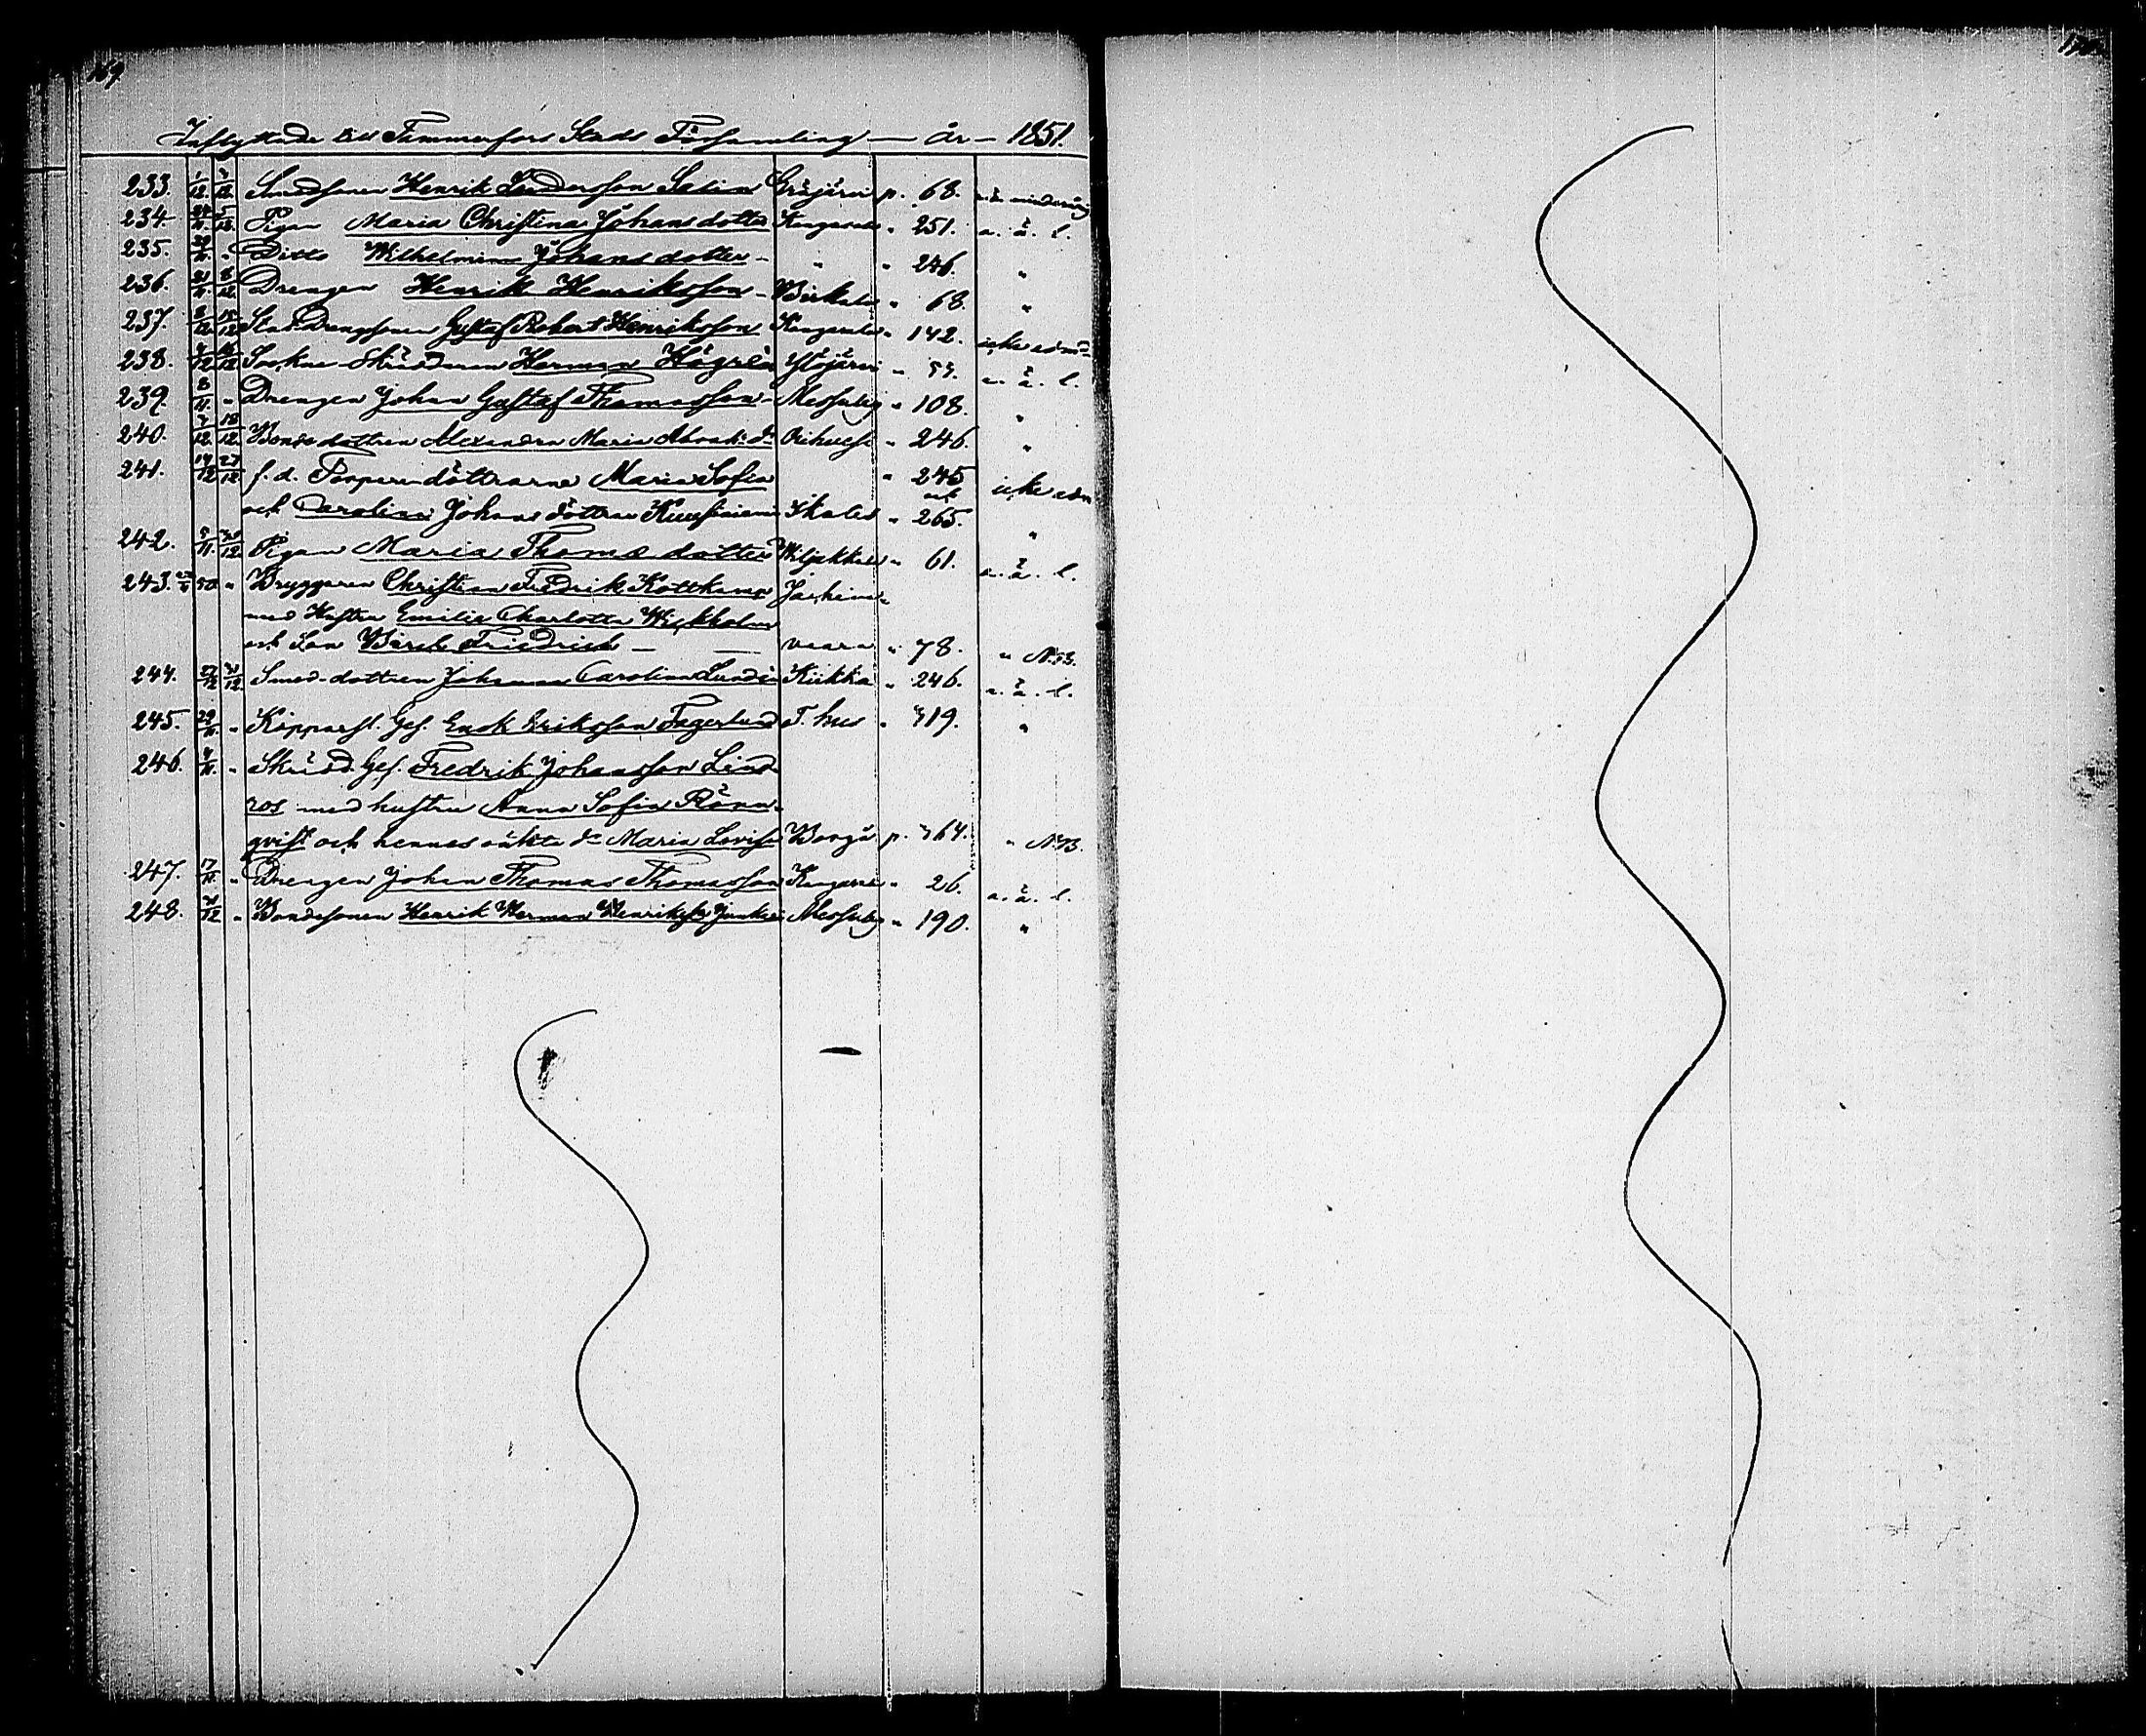 169.
Inflyttade till Tammerfors Stads Församling — år — 1851.
233. 1/12 Smedsonen Henrik Sandersson Salin Gräjärvi p. 68. minderårig
234. Pigan Maria Christina Johansdotter Kangasala " 251. a. ä. l.
235. " Ditto Wilhelmina Johansdotter - " " 246. "
236. Drengen Henrik Henriksson - Birkala " 68. "
237. 8/12 15/12 Drengsonen Gustaf Robert Henriksson Kangasala " 142. icke adm.
238. Sockne-Skräddaren Herman Högrén Ylöjärvi " 53. a. ä. l.
239. 8/11 " Drengen Johan Gustaf Thomasson - Messuby " 108. "
240. 7/12 18/12 Bonde dottren Alexandra Maria Abrah: dr Orihvesi " 246. "
241. 14/12 27/12 f. d. Torpare döttrarne Maria Sofia " 245 icke adm
och
och Carolina Johans döttrar Ikalis " 265. "
242. 5/11 30/12 Pigan Maria Thomsdotter Wiljakkala " 61. a. ä. l.
243. 50 " Bryggaren Christian Fredrik Kottkamp Joachims-
med Hustru Emilie Charlotta Wickholm
och Son Friedrich — — vaara " 78. " N:53.
244. 27/12 31/12 Smed-dottren Johanna Carolina Lundin Kiikka " 246. a. ä. l.
245. 29/11 " Kopparsl. Ges. Enok Eriksson Fagerlund T. hus " 319. "
246. 4/11 " Skrädd. Ges. Fredrik Johansson Lind-
ros med hustru Anna Sofia Rönn-
qvist och hennes oäkta dr Maria Lovisa Borgå p. 364. " N:93.
247. 17/11 " Drengen Johan Thomas Thomasson Kangasala " 26. a. ä. l.
248. 31/12 " Bondesonen Henrik Herman Henrikss. Messuby " 190. "